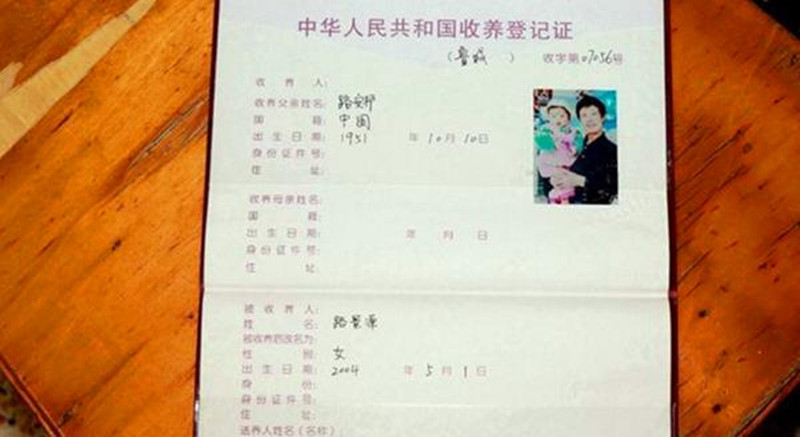 中华人民共和国收养登记证
( ) 收字第07056号
收养人:
收养父亲姓名: 路安
国籍: 中国
出生日期: 1951年10月10日
身份证件号:
住址:
收养母亲姓名:
国籍:
出生日期: 年 月 日
身份证件号:
住址:
被收养人:
姓名: 路景源
被收养后改名为:
性别: 女
出生日期: 2004年5月1日
身份:
身份证件号:
住址:
送养人姓名(名称):